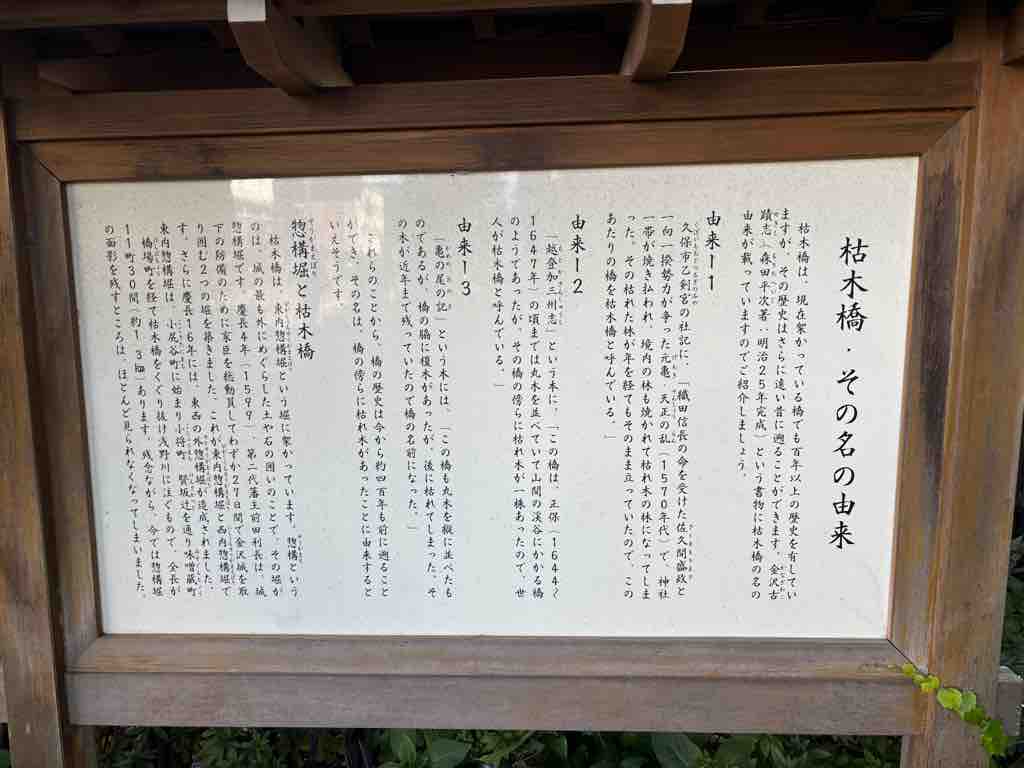 枯木橋・その名の由来
枯木橋は、現在架かっている橋でも百年以上の歴史を有してい
ますが、その歴史はさらに遠い昔に遡ることができます。金沢古
蹟志（森田平次著：明治25年完成）という書物に枯木橋の名の
由来が載っていますのでご紹介しましょう。
由来ー1
久保市乙剣宮の社記に、「織田信長の命を受けた佐久間盛政と
一向一揆勢力が争った元亀・天正の乱（1570年代）で、神社
一帯が焼き払われ、境内の林も焼かれて枯れ木の林になってしま
った。その枯れた林が年を経てもそのまま立っていたので、この
あたりの橋を枯木橋と呼んでいる。」
由来ー2
「越登加三州志」という本に、「この橋は、正保（1644〜
1647年）の頃までは丸木を並べていて山間の渓谷にかかる橋
のようであったが、その橋の傍らに枯れ木が一株あったので、世
人が枯木橋と呼んでいる。」
由来ー3
「亀の尾の記」という本には、「この橋も丸木を縦に並べたも
のであるが、橋の脇に榎木があったが、後に枯れてしまった。そ
の木が近年まで残っていたので橋の名前になった。」
これらのことから、橋の歴史は今から約四百年も前に遡ること
ができ、その名は、橋の傍らに枯れ木があったことに由来すると
いえそうです。
惣構堀と枯木橋
枯木橋は、東内惣構堀という堀に架かっています。惣構という
のは、城の最も外にめぐらした土や石の囲いのことで、その堀が
惣構堀です。慶長4年（1599）、第二代藩主前田利長は、城
下の防備のために家臣を総動員してわずか27日間で金沢城を取
り囲む2つの堀を築きました。これが東内惣構堀と西内惣構堀で
す。さらに慶長16年には、東西の外惣構堀が造成されました。
東内惣構堀は、小尻谷町に始まり小将町、賢坂辻を通り味噌蔵町、
橋場町を経て枯木橋をくぐり抜け浅野川に注ぐもので、全長が
11町30間（約1.3㎞）あります。残念ながら、今では惣構堀
の面影を残すところは、ほとんど見られなくなってしまいました。